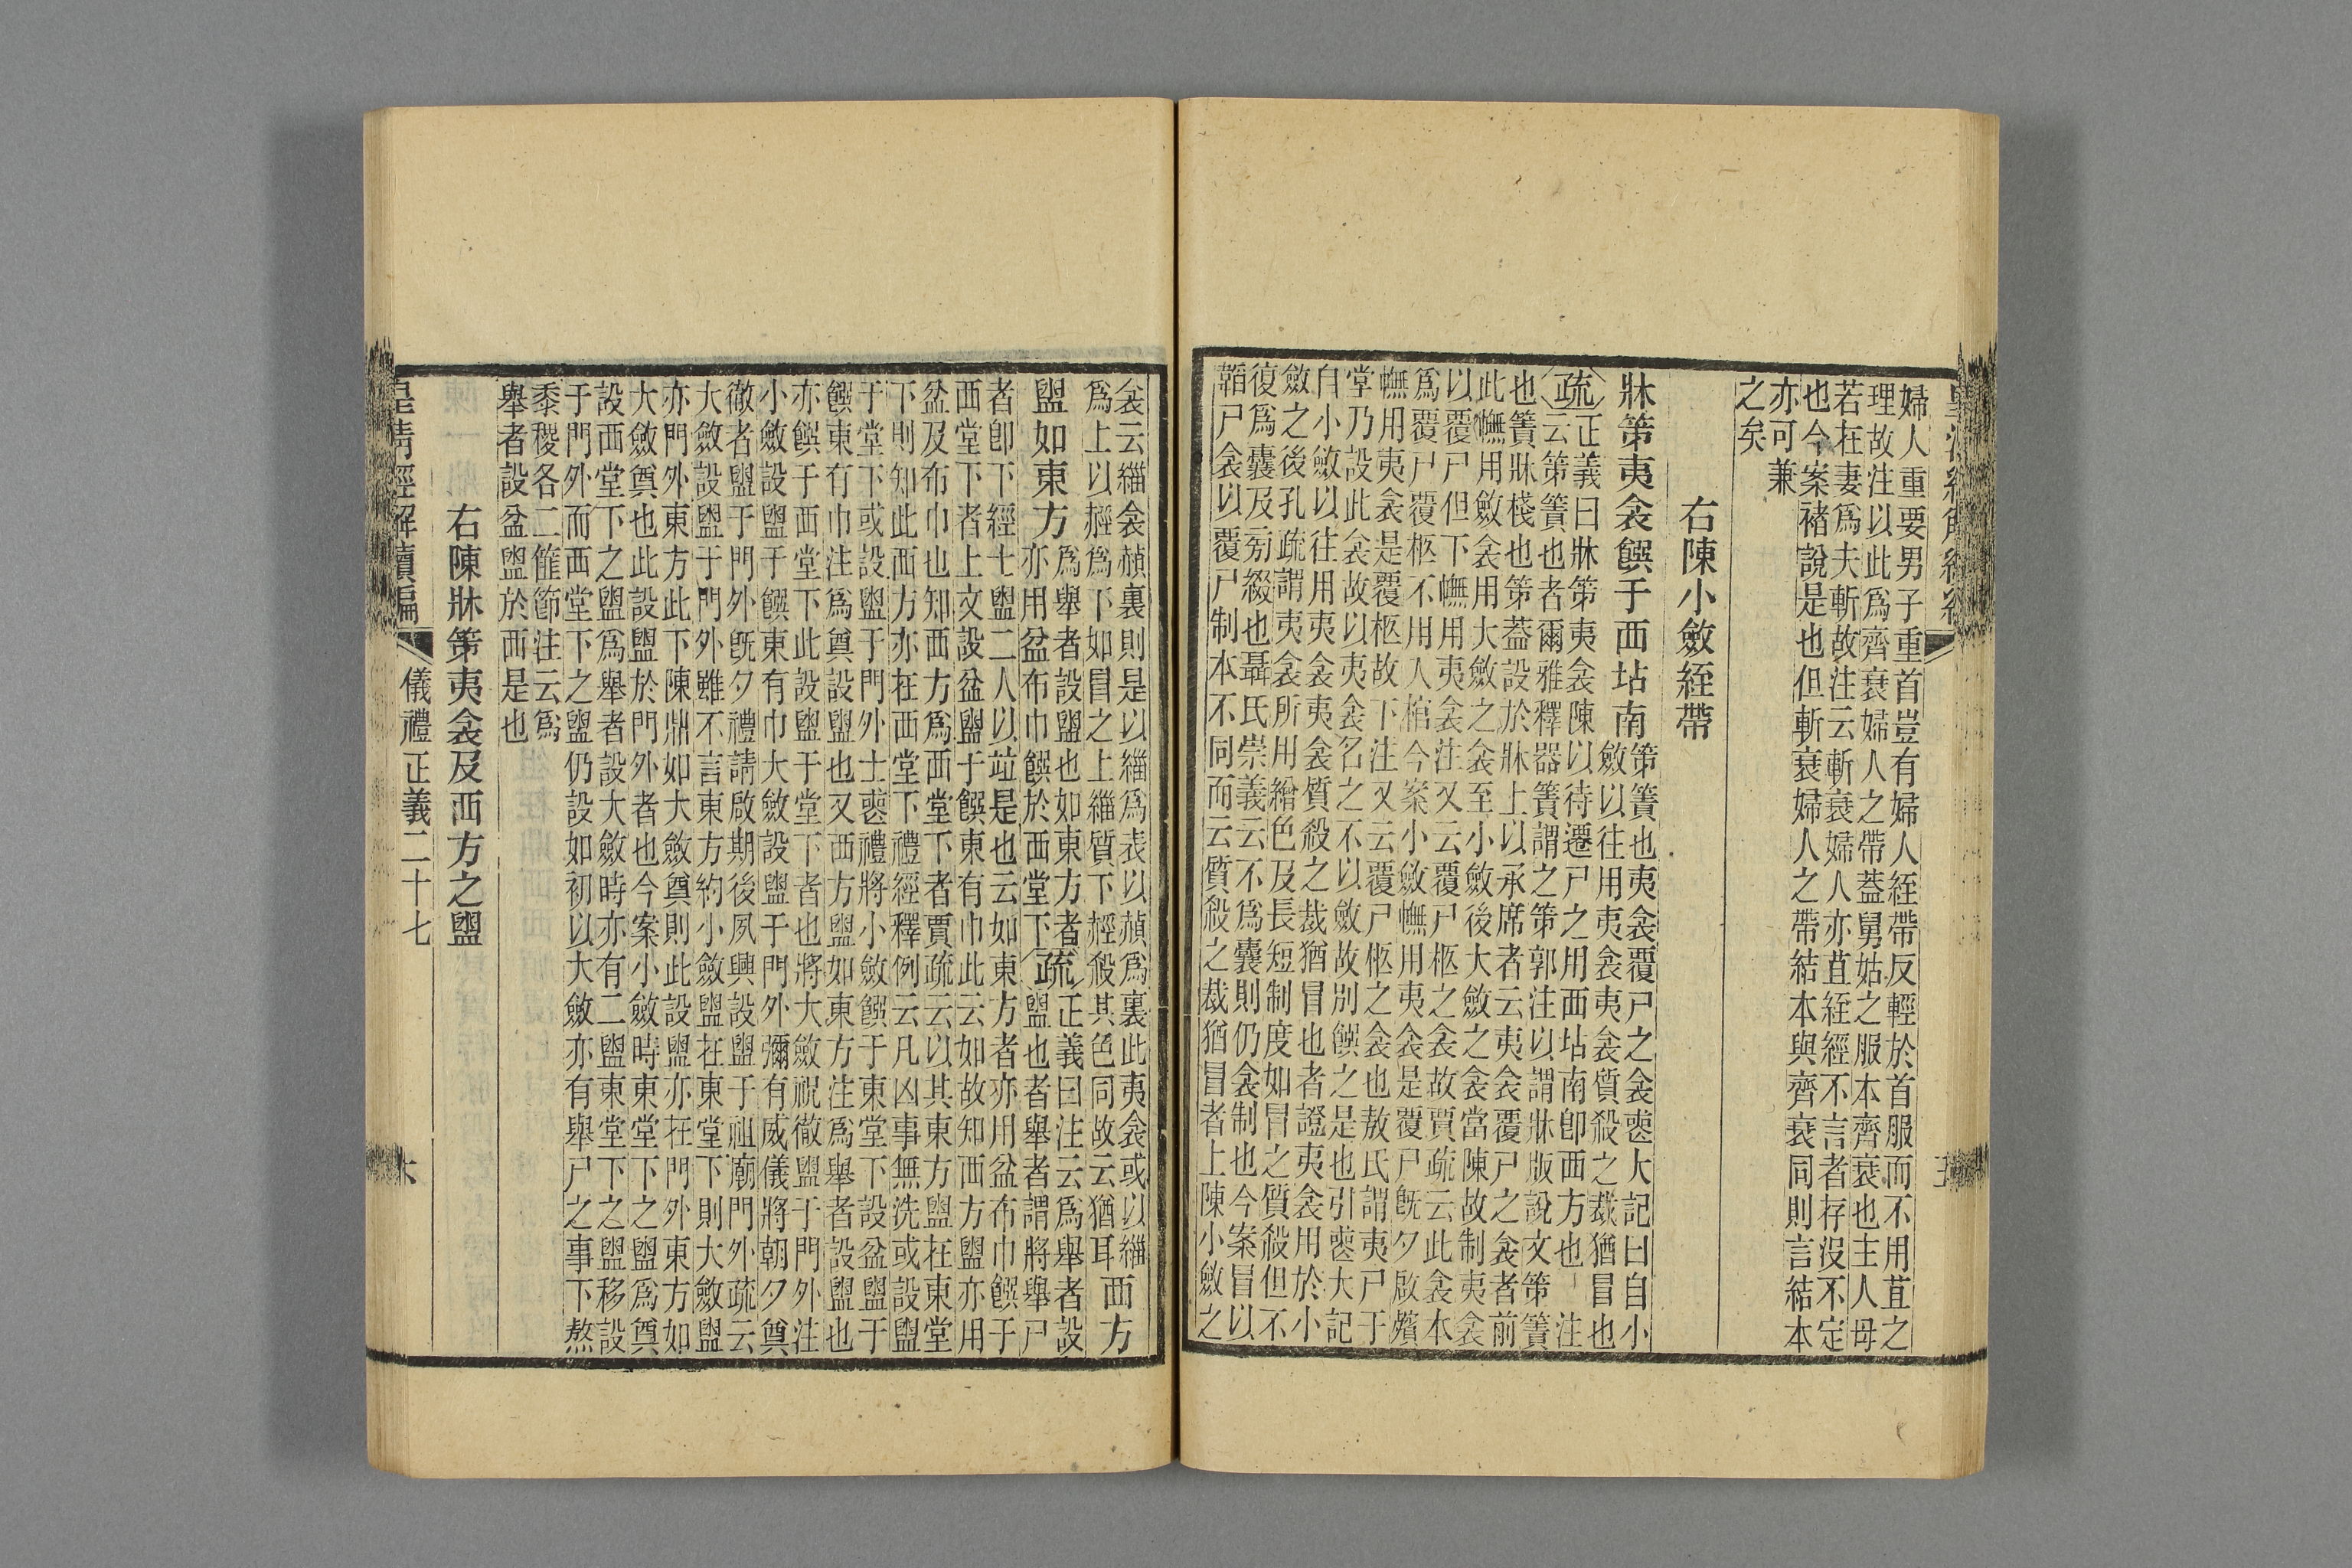 婦人重要男子重首豈有婦人絰帶反輕於首服而不用苴之
理故注以此爲齊衰婦人之帶蓋舅姑之服本齊衰也主人毋
若在妻爲夫斬故注云斬衰婦人亦苴絰經不言者存沒不定
也今案褚說是也但斬衰婦人之帶結本與齊衰同則言結本
亦可兼
之矣
右陳小斂絰帶
牀第夷衾饌于西坫南
第簀也夷衾覆尸之衾喪大記曰自小
斂以往用夷衾夷衾質殺之裁猶冒也
疏
正義曰牀第夷衾陳以待遷尸之用西坫南卽西方也 注
云第簀也者爾雅釋器簀謂之第郭注以謂牀版說文第簀
也簀牀棧也第蓋設於牀上以承席者云夷衾覆尸之衾者前
此幠用斂衾用大斂之衾至小斂後大斂之衾當陳故制夷衾
以覆尸但下幠用夷衾注又云覆尸柩之衾故賈疏云此衾本
爲覆尸覆柩不用入棺今案小斂幠用夷衾是覆尸旣夕啟殯
幠用夷衾是覆柩故下注又云覆尸柩之衾也敖氏謂夷尸于
堂乃設此衾故以夷衾名之不以斂故別饌之是也引喪大記
自小斂以往用夷衾夷衾質殺之裁猶冒也者證夷衾用於小
斂之後孔疏謂夷衾所用繒色及長短制度如冒之質殺但不
復爲囊及旁綴也聶氏崇義云不爲囊則仍衾制也今案冒以
韜尸衾以覆尸制本不同而云質殺之裁猶冒者上陳小斂之
衾云緇衾赬裏則是以緇爲表以赬爲裏此夷衾或以緇
爲上以赬爲下如冒之上緇質下赬殺其色同故云猶耳
西方
盥如東方
爲舉者設盥也如東方者
亦用盆布巾饌於西堂下
疏
正義曰注云爲舉者設
盥也者舉者謂將舉尸
者卽下經士盥二人以竝是也云如東方者亦用盆布巾饌于
西堂下者上文設盆盥于饌東有巾此云如故知西方盥亦用
盆及布巾也知西方爲西堂下者賈疏云以其東方盥在東堂
下則知此西方亦在西堂下禮經釋例云凡凶事無洗或設盥
于堂下或設盥于門外士喪禮將小斂饌于東堂下設盆盥于
饌東有巾注爲奠設盥也又西方盥如東方注爲舉者設盥也
亦饌于西堂下此設盥于堂下者也將大斂祝徹盥于門外注
小斂設盥于饌東有巾大斂設盥于門外彌有威儀將朝夕奠
徹者盥于門外旣夕禮請啟期後夙興設盥于祖廟門外疏云
大斂設盥于門外雖不言東方約小斂盥在東堂下則大斂盥
亦門外東方此下陳鼎如大斂奠則此設盥亦在門外東方如
大斂奠也此設盥於門外者也今案小斂時東堂下之盥爲奠
設西堂下之盥爲舉者設大斂時亦有二盥東堂下之盥移設
于門外而西堂下之盥仍設如初以大斂亦有舉尸之事下熬
黍稷各二筐節注云爲
舉者設盆盥於西是也
右陳牀第夷衾及西方之盥
皇清經解續編
儀禮正義二十七